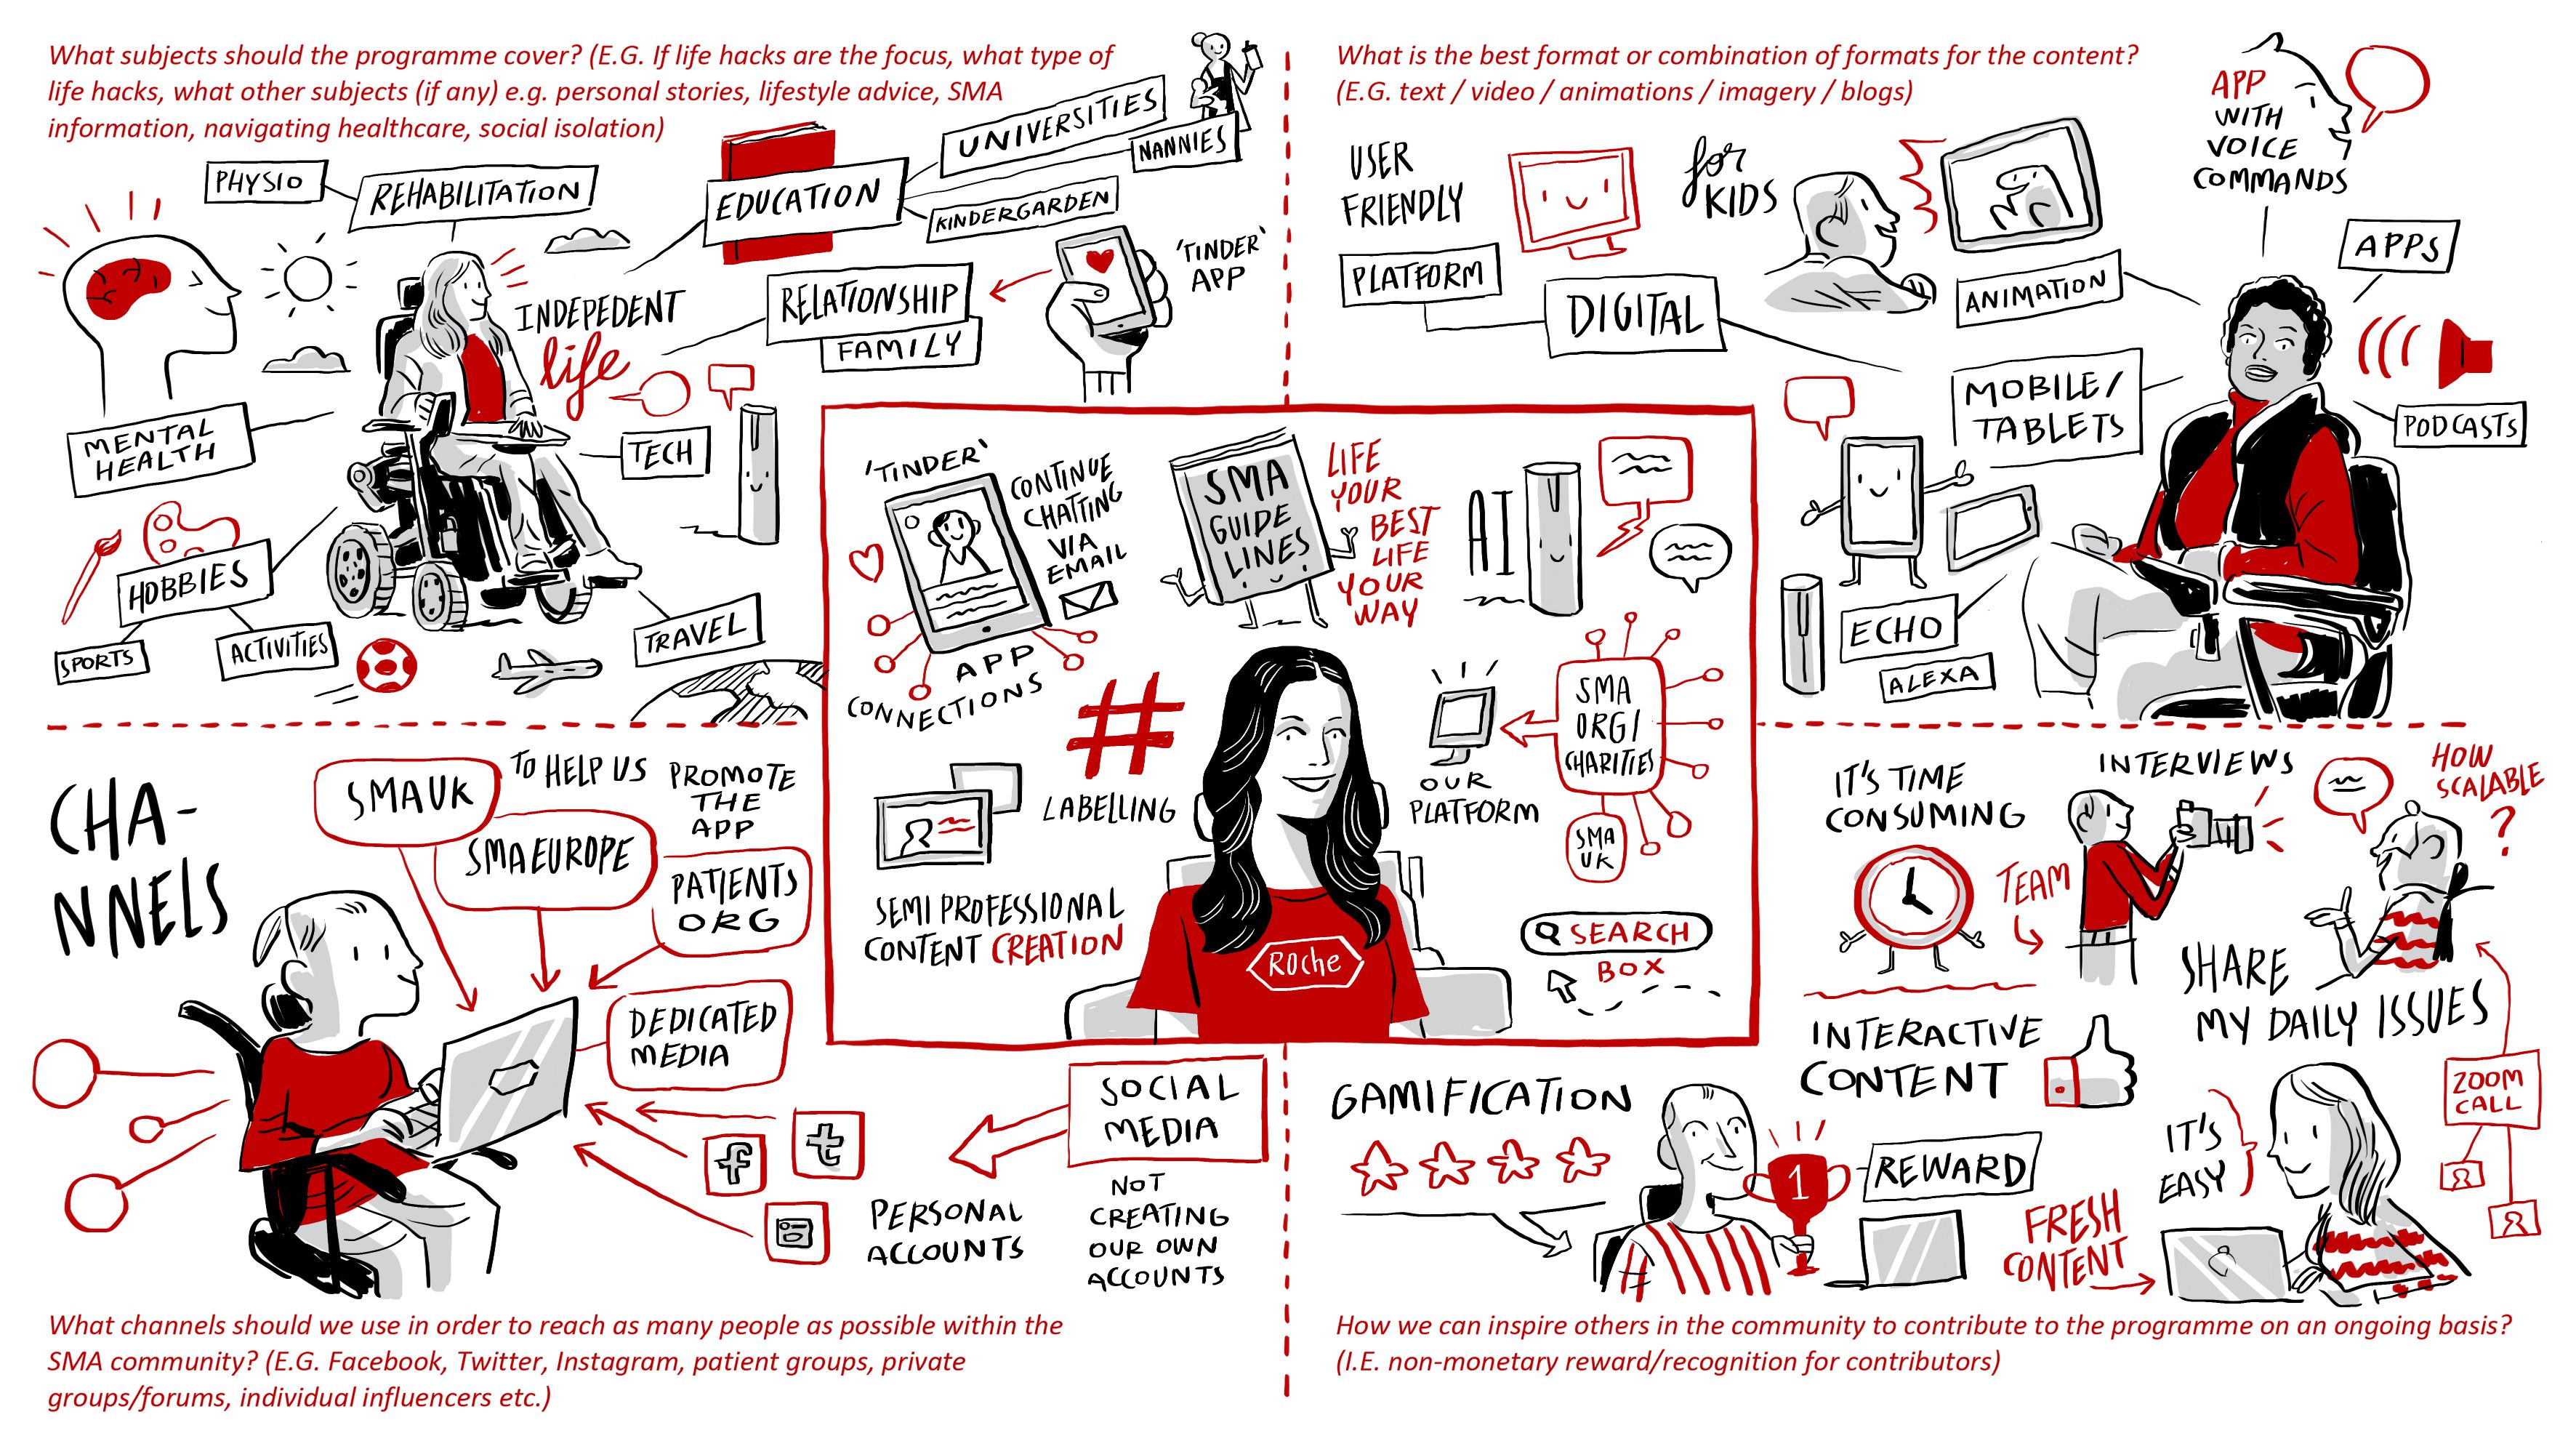 What subjects should the programme cover? (E.G. If life hacks are the focus, what type of
life hacks, what other subjects (if any) e.g. personal stories, lifestyle advice, SMA
information, navigating healthcare, social isolation)
PHYSIO
REHABILITATION
EDUCATION
UNIVERSITIES
NANNIES
KINDERGARDEN
'TINDER'
APP
RELATIONSHIP
FAMILY
INDEPEDENT
life
MENTAL
HEALTH
TECH
HOBBIES
SPORTS
ACTIVITIES
TRAVEL
What is the best format or combination of formats for the content?
(E.G. text / video / animations / imagery / blogs)
USER
FRIENDLY
PLATFORM
DIGITAL
for
KIDS
ANIMATION
APP
WITH
VOICE
COMMANDS
APPS
MOBILE/
TABLETS
PODCASTS
ECHO
ALEXA
'TINDER'
CONTINUE
CHATTING
VIA
EMAIL
APP
CONNECTIONS
SMA
GUIDE
LINES
LIFE
YOUR
BEST
LIFE
YOUR
WAY
AI
#
LABELLING
OUR
PLATFORM
SMA
ORG/
CHARITIES
SMA
UK
SEMI PROFESSIONAL
CONTENT CREATION
Roche
SEARCH
BOX
CHA-
NNELS
SMA UK
TO HELP US
PROMOTE
THE
APP
SMA EUROPE
PATIENTS
ORG
DEDICATED
MEDIA
SOCIAL
MEDIA
f
t
PERSONAL
ACCOUNTS
NOT
CREATING
OUR OWN
ACCOUNTS
What channels should we use in order to reach as many people as possible within the
SMA community? (E.G. Facebook, Twitter, Instagram, patient groups, private
groups/forums, individual influencers etc.)
IT'S TIME
CONSUMING
INTERVIEWS
HOW
SCALABLE
?
TEAM
SHARE
MY DAILY ISSUES
INTERACTIVE
CONTENT
ZOOM
CALL
GAMIFICATION
1
REWARD
IT'S
EASY
FRESH
CONTENT
How we can inspire others in the community to contribute to the programme on an ongoing basis?
(I.E. non-monetary reward/recognition for contributors)